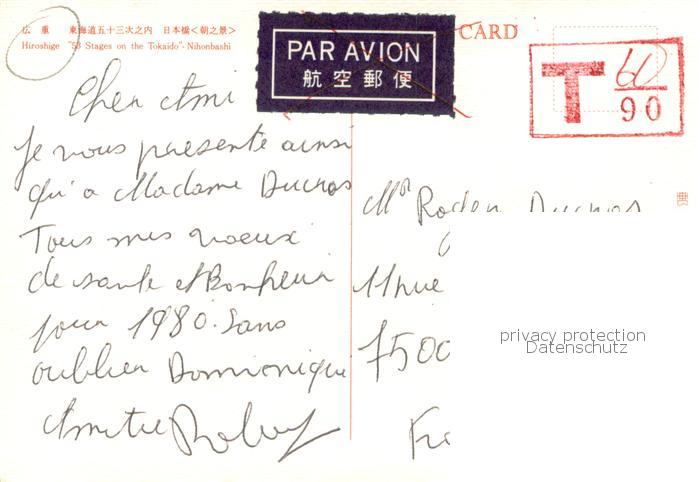 広重 東海道五十三次之内 日本橋<朝之景>
Hiroshige "53 Stages on the Tokaido"- Nihonbashi
PAR AVION
航空郵便
CARD
T 60
90
Cher Ami
Je vous presente ainsi
qu'a Madame Ducros
Tous mes voeux
de sante et Bonheur
pour 1980. Sans
oublier Dominique
Amitie
Mr Roger Ducros
11 rue
7500
Fr
privacy protection
Datenschutz